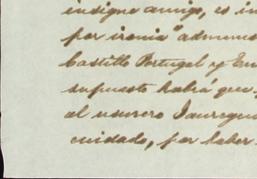 insigne amigo, es in
por ironia" admemo
Castillo Portugal y Em
supuesto habrá que
al usurero Jauregui
cuidado, por haber